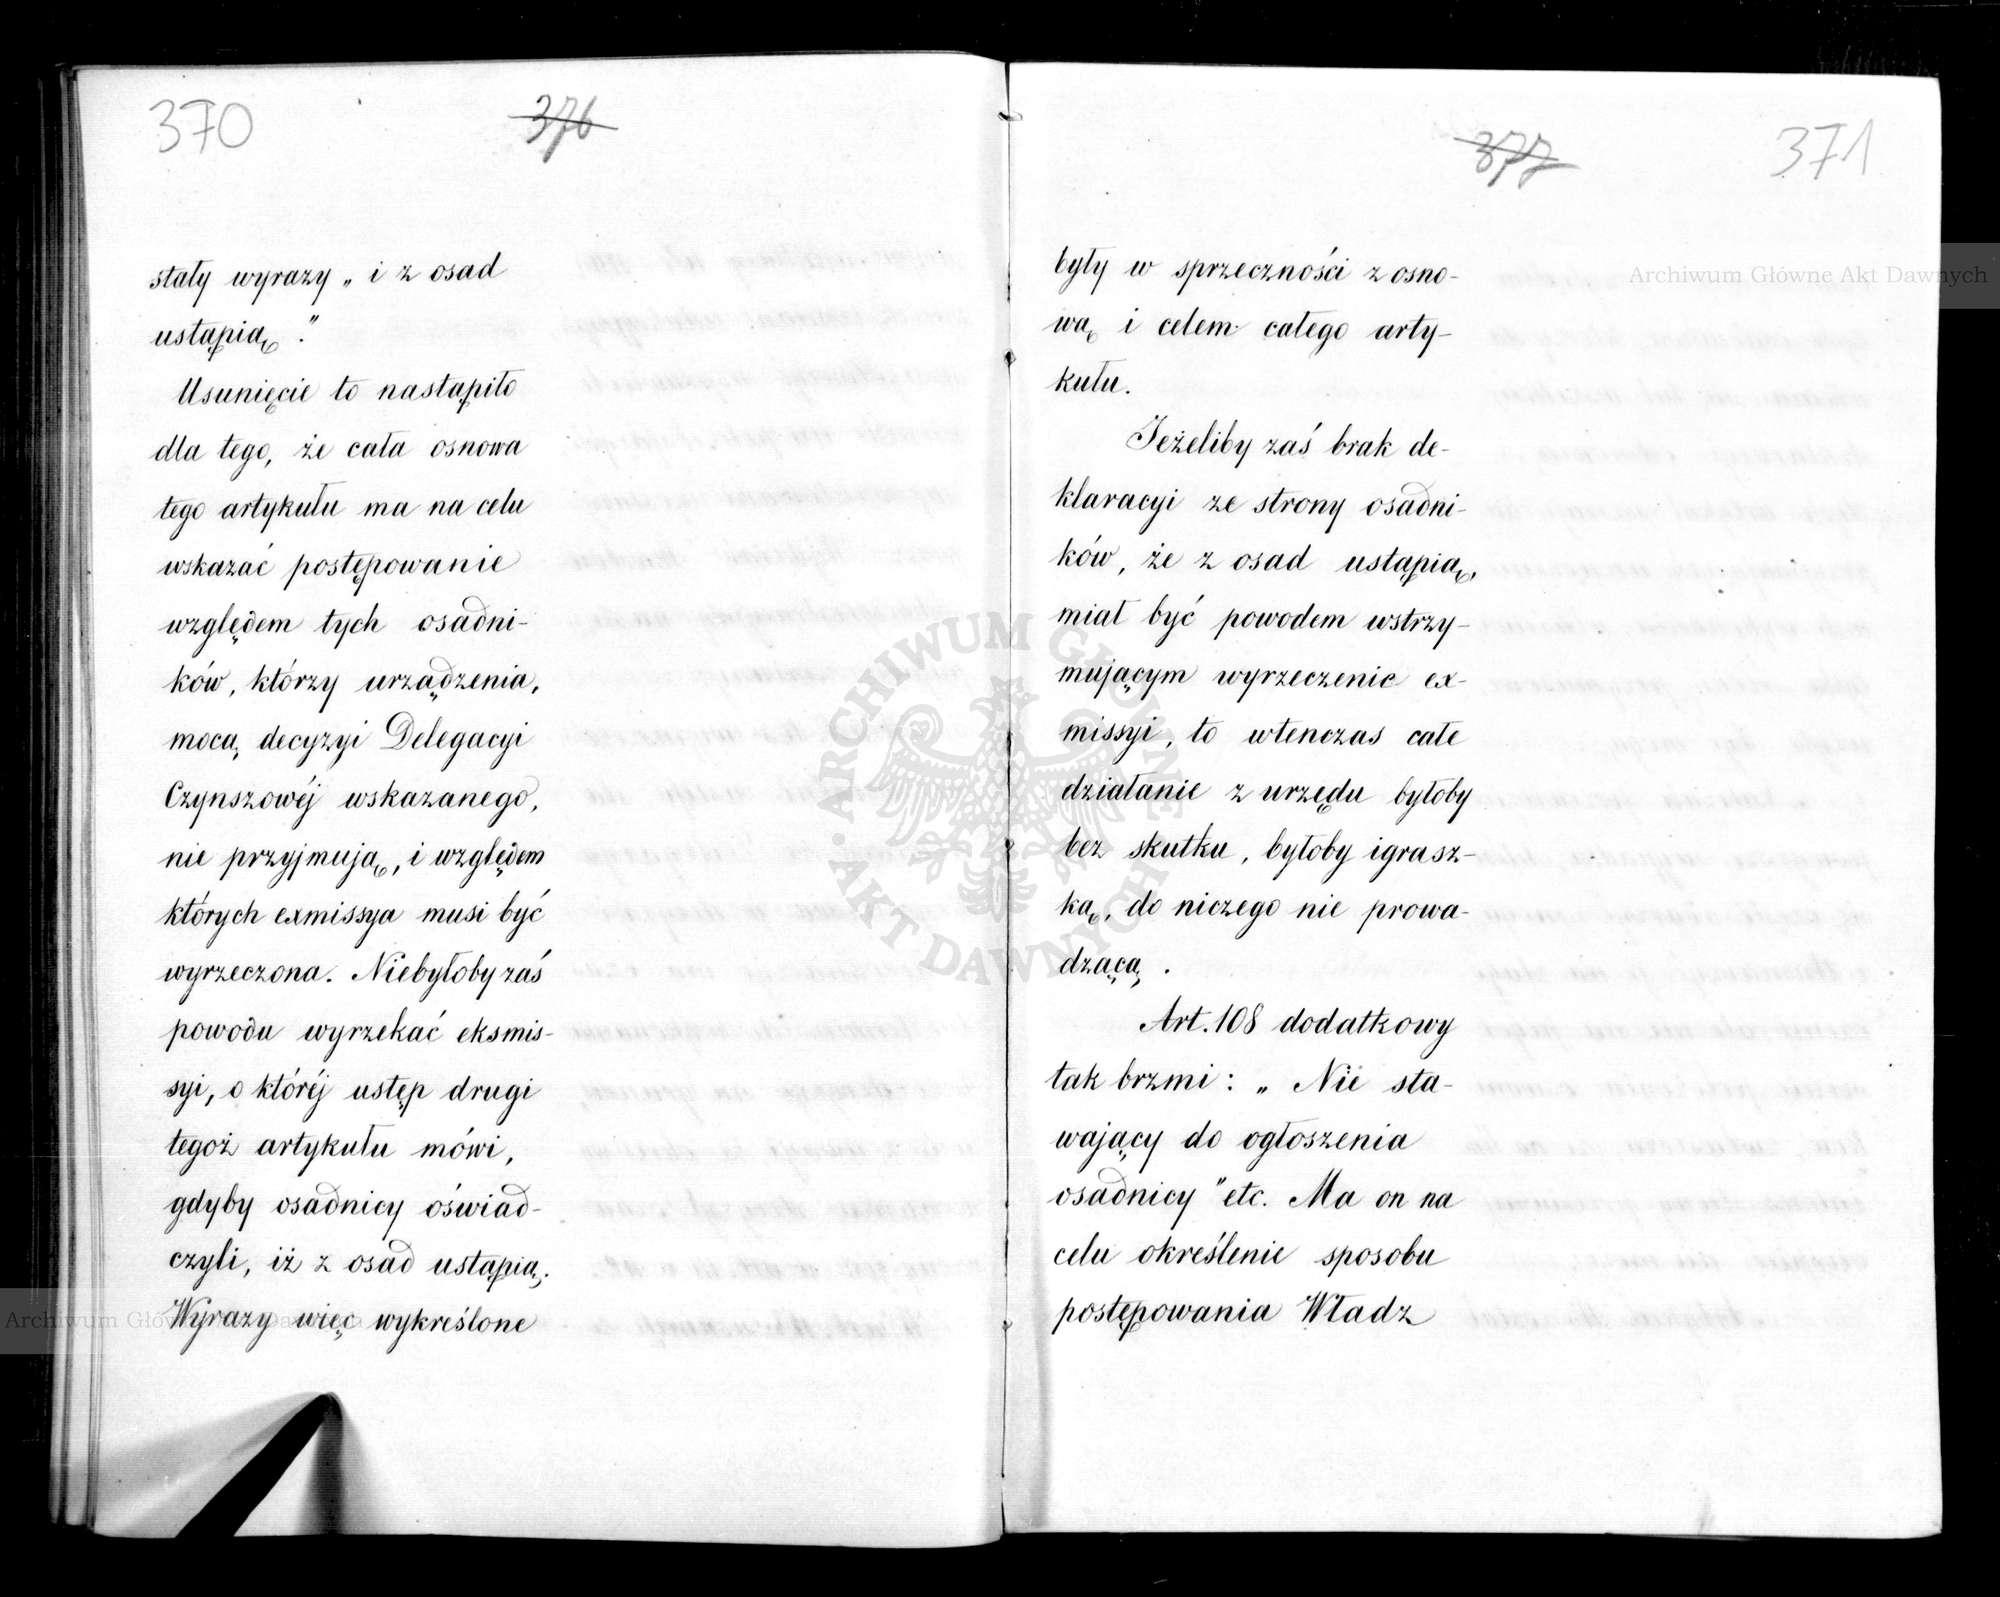 370
376
stały wyrazy „ i z osad
ustąpią.”
Usunięcie to nastąpiło
dla tego, że cała osnowa
tego artykułu ma na celu
wskazać postępowanie
względem tych osadni-
ków, którzy urządzenia,
mocą decyzyi Delegacyi
Czynszowéj wskazanego,
nie przyjmują, i względem
których exmissya musi być
wyrzeczona. Niebyłoby zaś
powodu wyrzekać eksmis-
syi, o któréj ustęp drugi
tegoż artykułu mówi,
gdyby osadnicy oświad-
czyli, iż z osad ustąpią.
Wyrazy więc wykreślone
377
371
były w sprzeczności z osno-
wą i celem całego arty-
kułu.
Jeżeliby zaś brak de-
klaracyi ze strony osadni-
ków, że z osad ustąpią,
miał być powodem wstrzy-
mującym wyrzeczenie ex-
missyi, to wtenczas całe
działanie z urzędu byłoby
bez skutku, byłoby igrasz-
ką, do niczego nie prowa-
dzącą.
Art. 108 dodatkowy
tak brzmi: „ Nie sta-
wający do ogłoszenia
osadnicy” etc. Ma on na
celu określenie sposobu
postępowania Władz
Archiwum Główne Akt Dawnych
ARCHIWUM GŁÓWNE
AKT DAWNYCH
Archiwum Główne Akt Dawnych